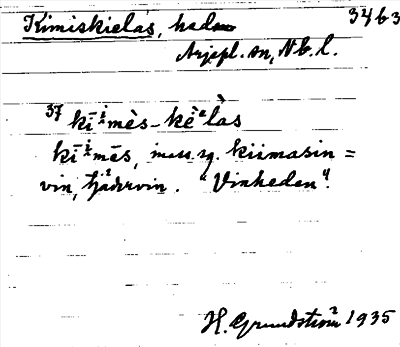 Kimiskielas, hed 3463
Arjepl. sn, Nb. l.
37 kī-i̯mès-kèạlàs
kī-i̯mēs, mass. sg. kiimasin =
vin, tjädervin. "Vinheden".
H. Grundström 1935